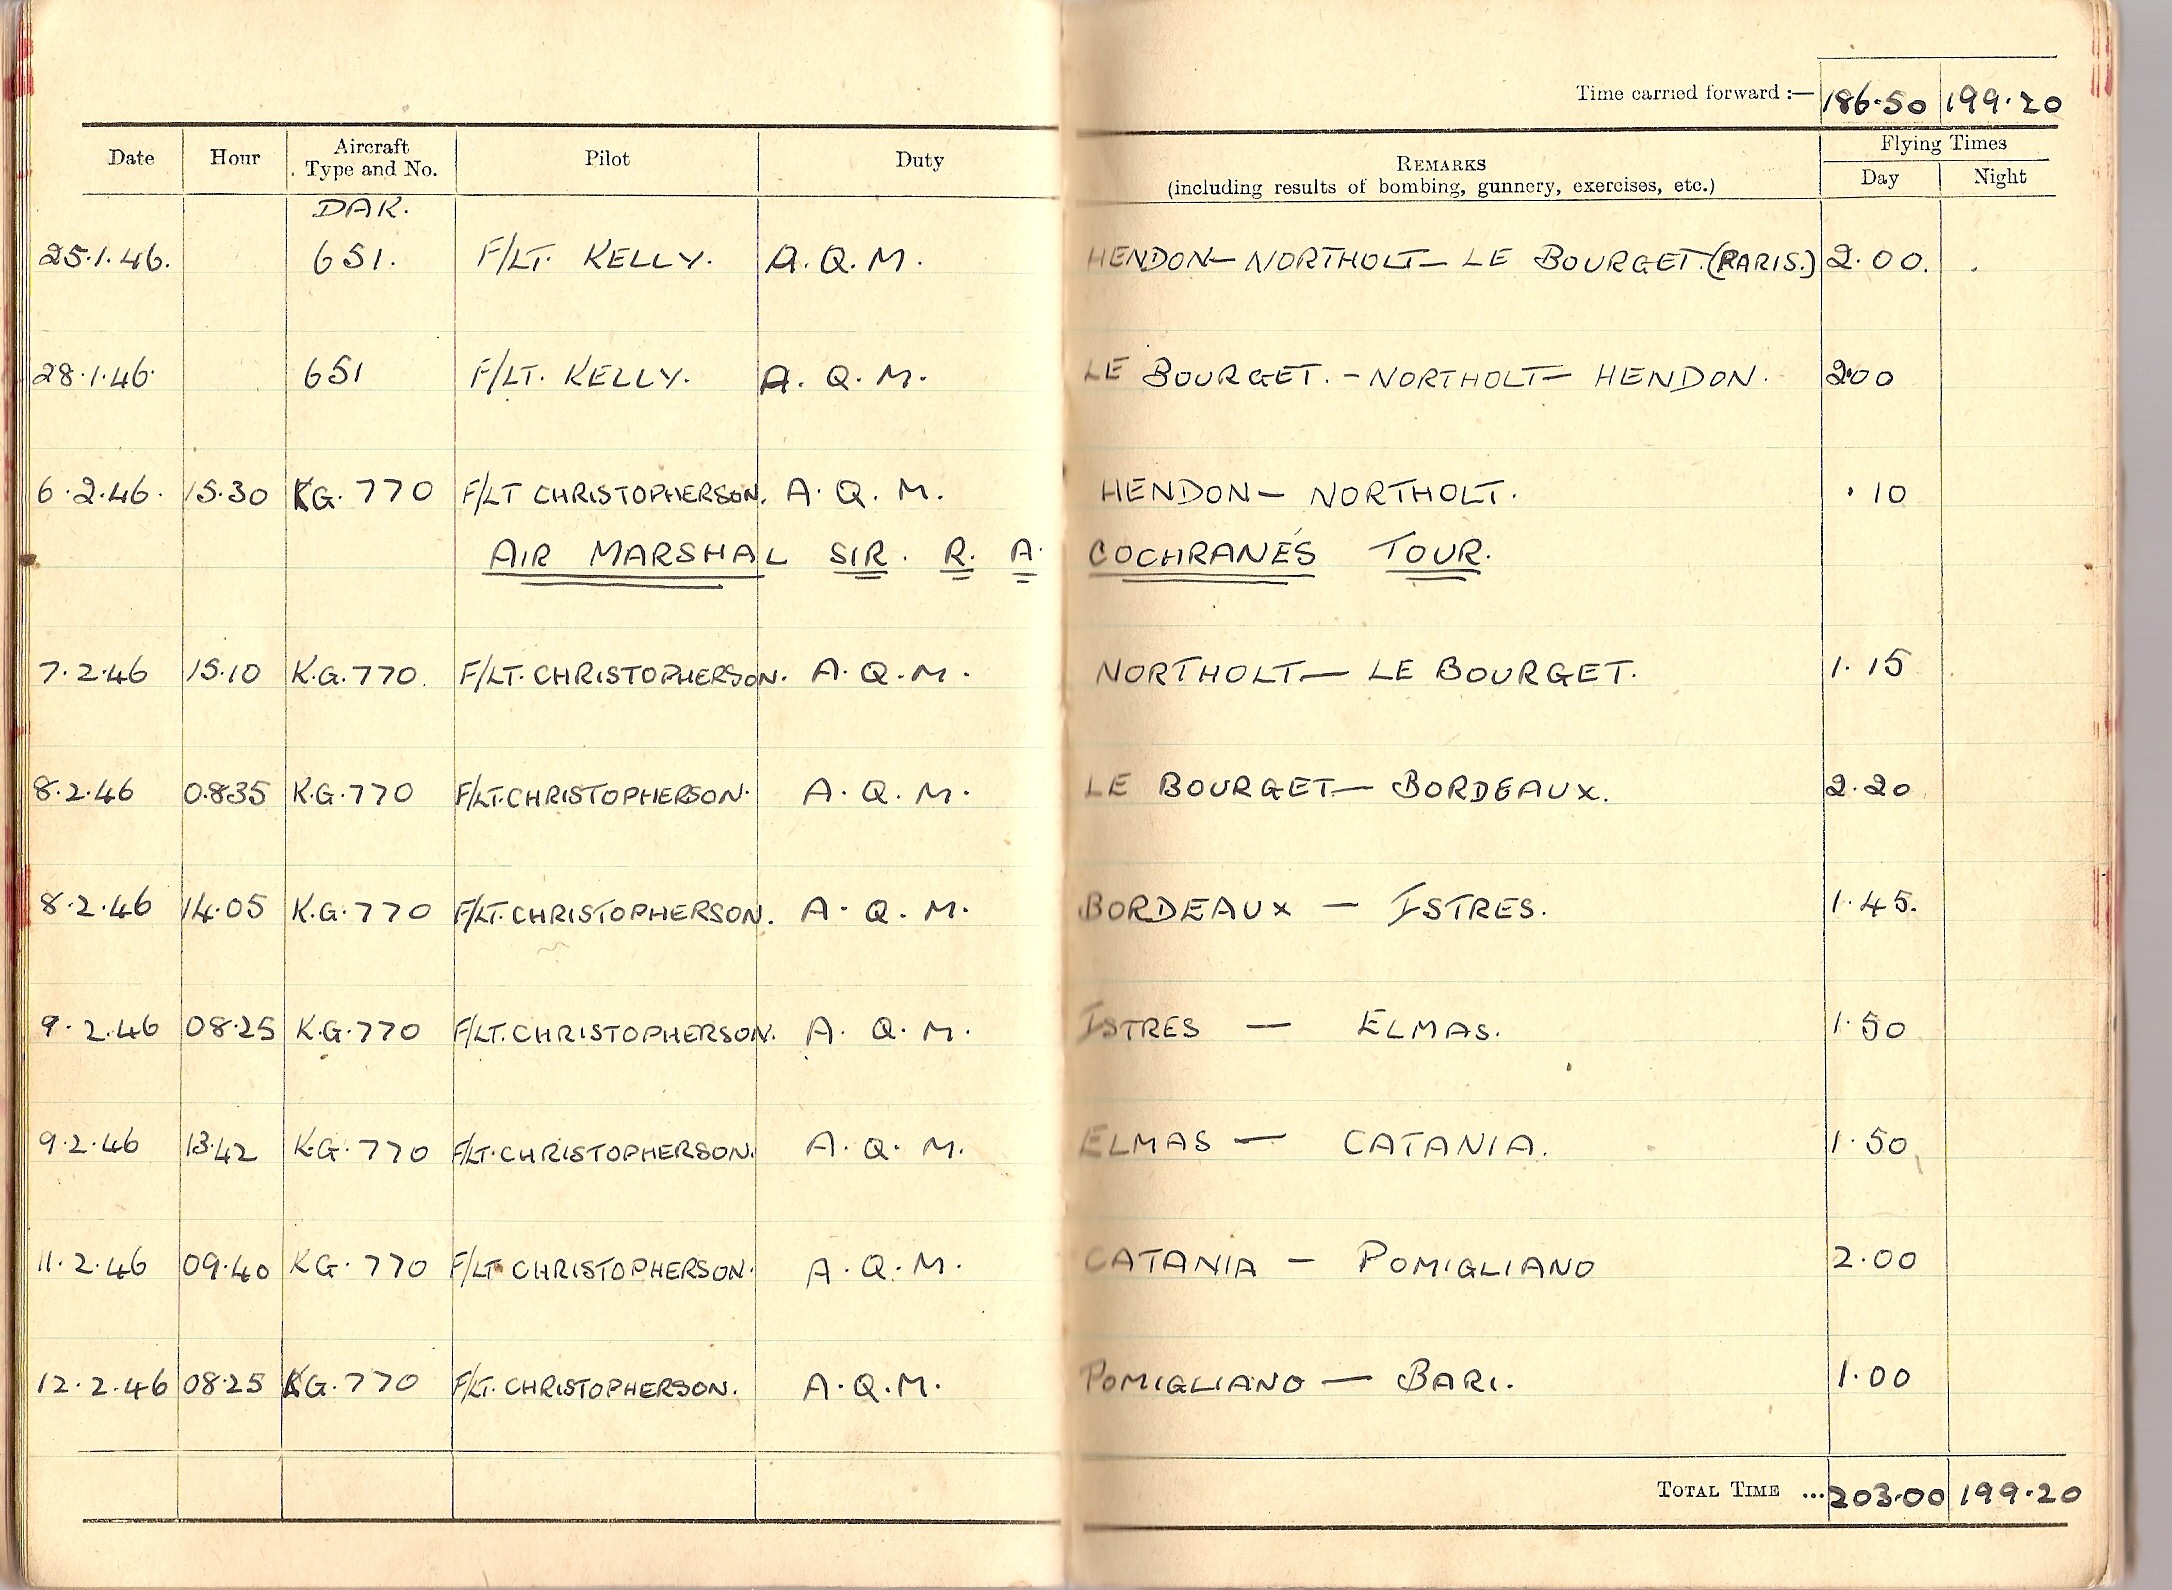 Time carried forward :— 186.50 199.20
Date Hour Aircraft Type and No. Pilot Duty REMARKS (including results of bombing, gunnery, exercises, etc.) Flying Times Day Night
DAK.
25.1.46. 651. F/LT. KELLY. A.Q.M. HENDON—NORTHOLT—LE BOURGET.(PARIS.) 2.00.
28.1.46. 651 F/LT. KELLY. A.Q.M. LE BOURGET.-NORTHOLT—HENDON. 2.00
6.2.46. 15.30 KG.770 F/LT CHRISTOPHERSON. A.Q.M. HENDON—NORTHOLT. .10
AIR MARSHAL SIR. R. A. COCHRANE'S TOUR.
7.2.46 15.10 K.G.770. F/LT.CHRISTOPHERSON. A.Q.M. NORTHOLT—LE BOURGET. 1.15
8.2.46 0.835 K.G.770 F/LT.CHRISTOPHERSON. A.Q.M. LE BOURGET—BORDEAUX. 2.20
8.2.46 14.05 K.G.770 F/LT.CHRISTOPHERSON. A.Q.M. BORDEAUX — ISTRES. 1.45.
9.2.46 08.25 K.G.770 F/LT.CHRISTOPHERSON. A.Q.M. ISTRES — ELMAS. 1.50
9.2.46 13.42 K.G.770 F/LT.CHRISTOPHERSON. A.Q.M. ELMAS — CATANIA. 1.50
11.2.46 09.40 KG.770 F/LT CHRISTOPHERSON. A.Q.M. CATANIA — POMIGLIANO 2.00
12.2.46 08.25 KG.770 F/LT. CHRISTOPHERSON. A.Q.M. POMIGLIANO — BARI. 1.00
TOTAL TIME ... 203.00 199.20